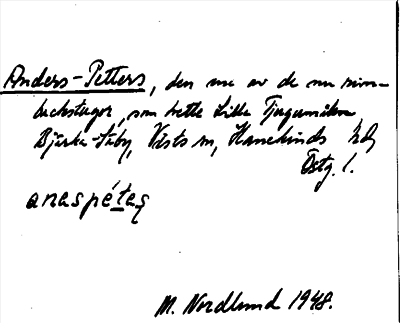 Anders-Petters, den ena av de nu rim-
backstugor, som hette Lilla
Bjärka-Säby, Vists sn, Hanekinds hd,
Östg. l.
anəspétəş
M. Nordlund 1948.